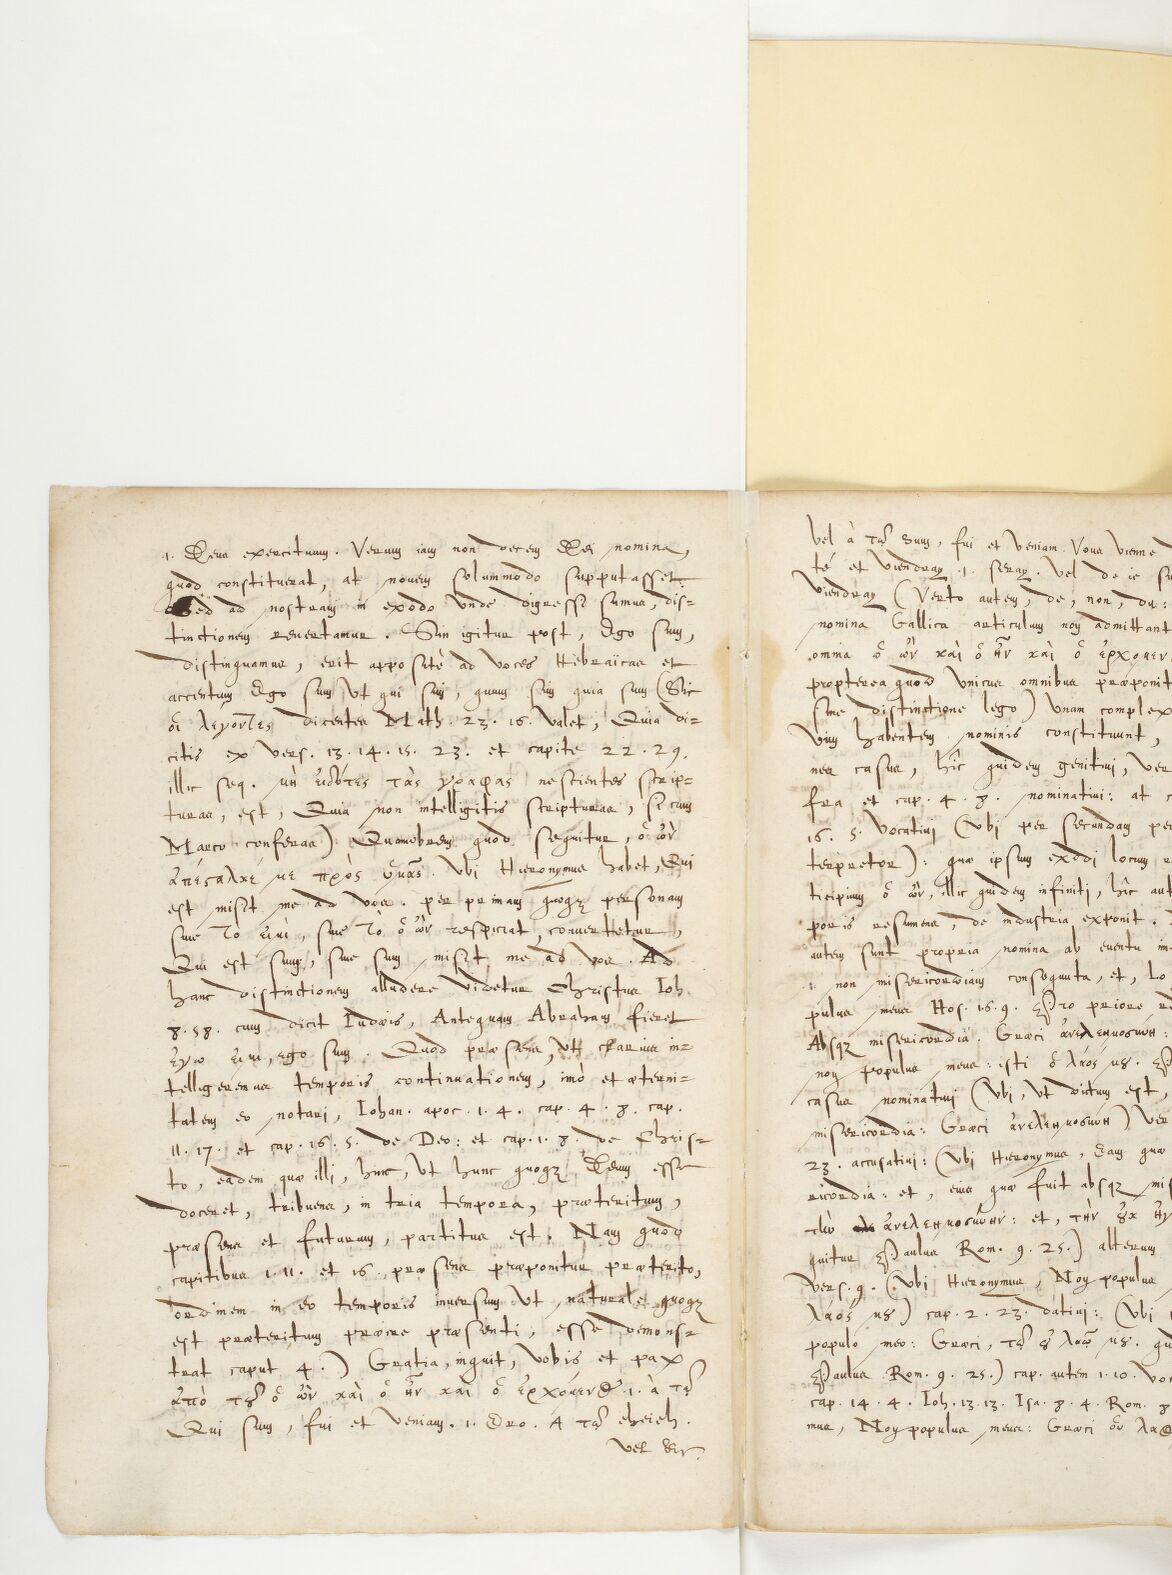 1. Deus exercituum. Verum iam non decem Dei nomina,
quod constituerat, at novem solummodo supputasset.
Sed ad nostram in exodo unde digressi sumus, dis-
tinctionem revertamur. Sin igitur post, Ego sum,
distinguamus, erit appositè ad voces Hebraïcas et
accentum Ego sum ut qui sim, quam sim quia sum (Sic
οἱ λέγοντες dicentes Math. 23. 16. valet, Quia di-
citis ex vers. 13. 14. 15. 23. et capite 22. 29.
illic seq. μὴ εἰδότες τὰς γραφὰς nescientes scrip-
turas, est, Quia non intelligitis scripturas, si cum
Marco conferas): Quamobrem quod sequitur, ὁ ὢν
ἀπέςαλκέ με πρὸς ὑμᾶς. Ubi Hieronymus habet, Qui
est misit me ad vos. per primam quoq; personam
sive τὸ εἰμὶ, sive τὸ ὁ ὢν respiciat, convertetur,
Qui est sum, sive sum misit me ad vos. Ad
hanc distinctionem alludere videtur Christus Ioh.
8. 58. cum dicit Iudæis, Antequam Abraham fieret
ἐγω εἰμι, ego sum. Quod præsens, ut clarius in-
telligeremus temporis continuationem, imò et æterni-
tatem eo notari, Iohan. apoc. 1. 4. cap. 4. 8. cap.
11. 17. et cap. 16. 5. de Deo: et cap. 1. 8. de Chris-
to, eadem quæ illi, huic, ut hunc quoq; Deum esse
doceret, tribuens, in tria tempora, præteritum,
præsens et futurum, partitus est. Nam quod
capitibus 1. 11. et 16. præsens præponitur præterito,
ordinem in eo temporis inversum ut naturale quoq;
est præteritum præire præsenti, esse demons-
trat caput 4.) Gratia, inquit, vobis et pax
ἀπὸ τοῦ ὁ ὢν καὶ ὁ ἦν καὶ ὁ ἐρχόμενος. 1. à τοῦ
Qui sum, fui et veniam. 1. Dro. A τοῦ eheieh.
vel à τοῦ Sum, fui et veniam. Vous vienne
té et viendray. 1. seray. vel de ie
viendray (Verto autem, de, non, du:
nomina Gallica articulum non admittant
omma ὁ ὢν καὶ ὁ ἦν καὶ ὁ ἐρχομεν
propterea quod unicus omnibus præponit
sine distinctione lego) unam complex
vim habentem nominis constituunt,
nes casus, hîc quidem genitivi, ver
fra et cap. 4. 8. nominativi: at
16. 5. vocativi (ubi per secundam per
terpretor): quæ ipsum exodi locum
ticipium ὁ ὢν, illic quidem infiniti, hîc aut
poris resumens, de industria exponit.
autem sunt propria nomina ab eventu im
1. non misericordiam consequuta, et, Lo
pulus meus Hos. 1. 6. 9. Pro priore
Absq; misericordia. Græci ἀνελεημοσύνη:
non populus meus: isti ὁ λαός μȣ.
casus nominativi (ubi, ut dictum est,
misericordia: Græci ἀνελεημοσύνη) ver
23. accusativi: (ubi Hieronymus, Eam quæ
ricordia: et, eius quæ fuit absq; mis
τὴν ἀνελεημοσύνην: et, τὴν ȣκ ἠγ
quitur Paulus Rom. 9. 25.) alterum
vers. 9. (ubi Hieronymus, Non populus
λαός μȣ) cap. 2. 23. dativi: (ubi
populo meo: Græci, τῷ ȣ λαῷ μȣ.
Paulus Rom. 9. 25.) cap. autem 1. 10.
cap. 14. 4. Ioh. 13. 13. Isa. 8. 4. Rom. 8
mus, Non populus meus: Græci ȣ λαὸς